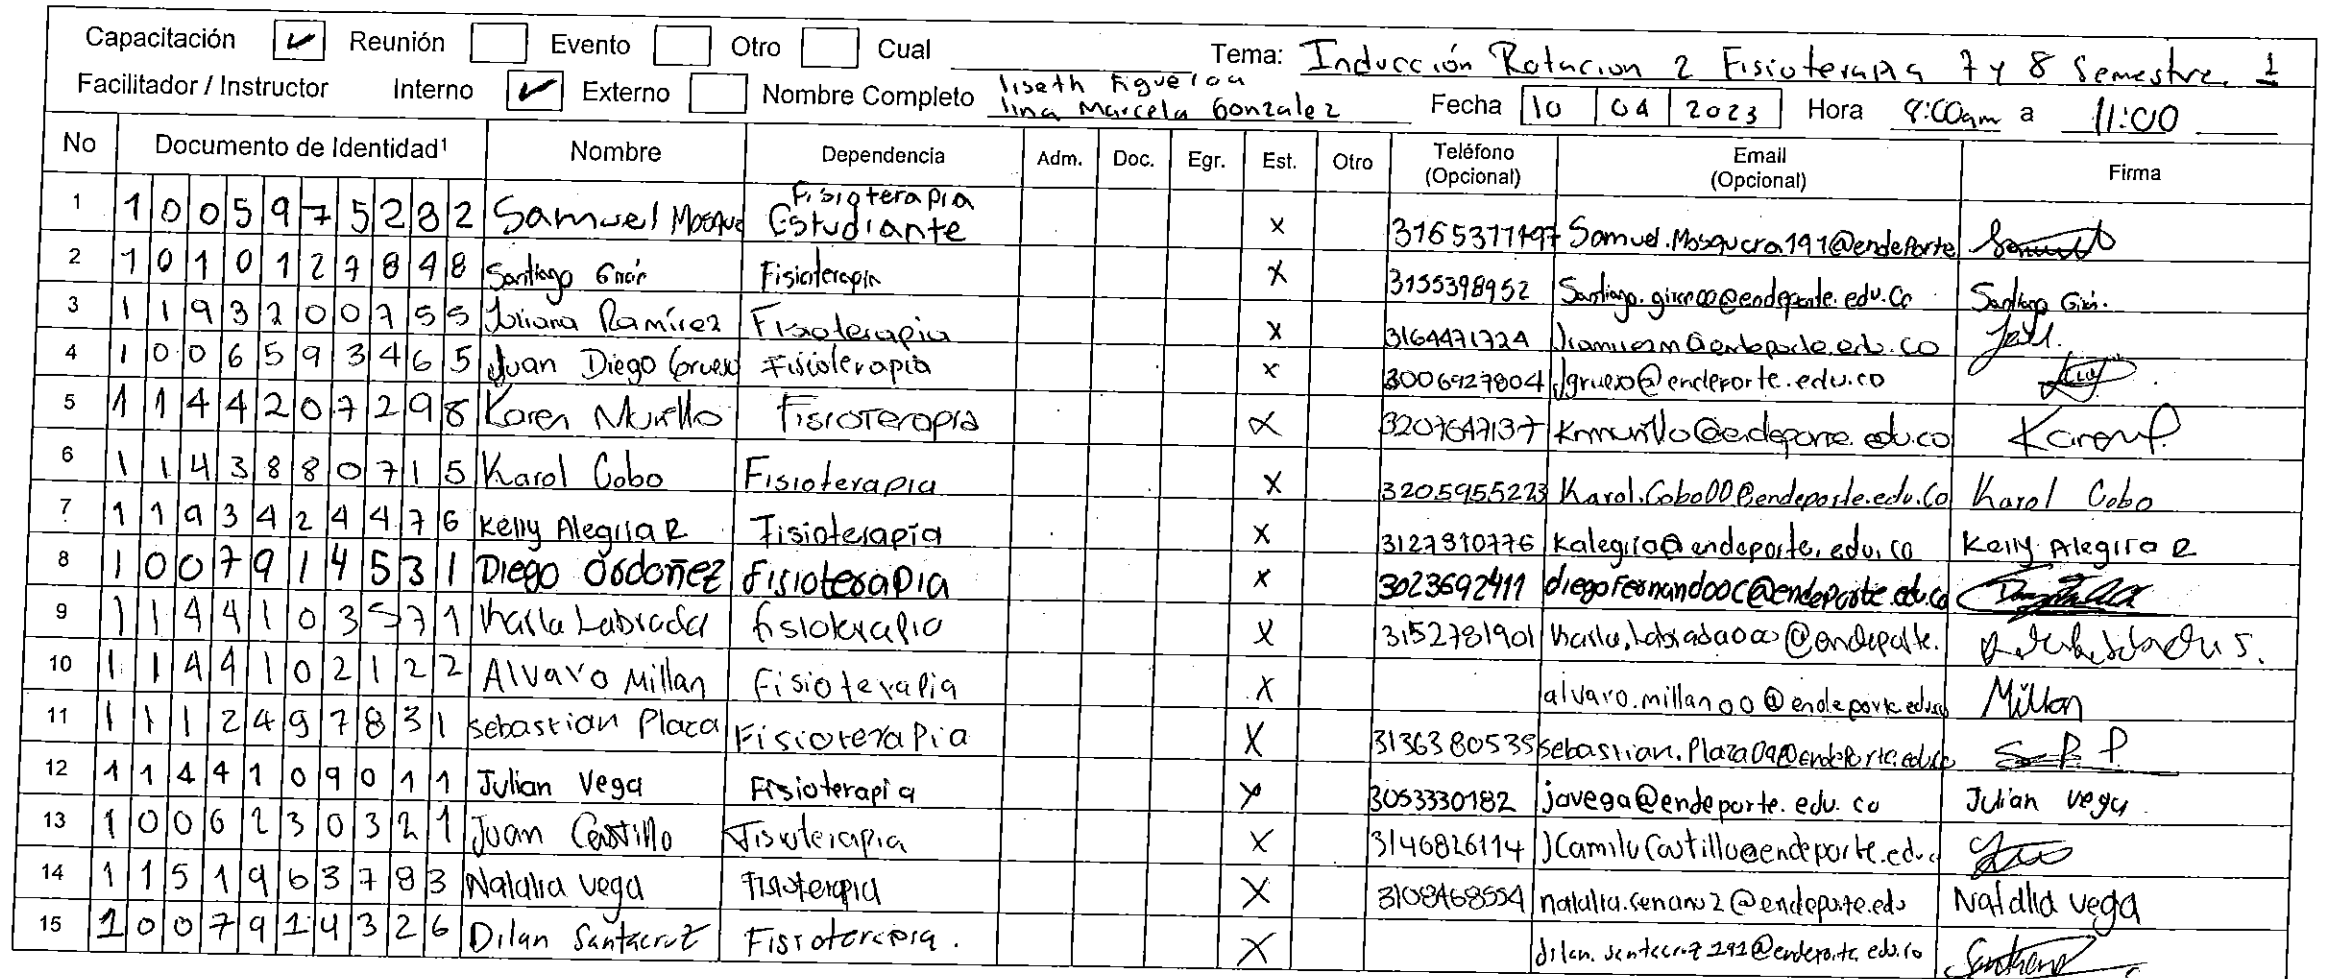 Capacitación ✓ Reunión Evento Otro Cual Tema: Inducción Rotacion 2 Fisioterapia 7 y 8 Semestre. 1
Facilitador / Instructor Interno ✓ Externo Nombre Completo liseth Figueroa lina Marcela Gonzalez Fecha 10 04 2023 Hora 8:00am a 11:00
No Documento de Identidad¹ Nombre Dependencia Adm. Doc. Egr. Est. Otro Teléfono (Opcional) Email (Opcional) Firma
1 1005975282 Samuel Mosque Fisioterapia Estudiante x Samuel.Mosquera191@endeporte
2 1010127848 Santiago Fisioterapia x 3155398952 Santiago Girón.
3 1193200755 Juliana Ramírez Fisioterapia x 3164471724
4 1006593465 Juan Diego Grueso Fisioterapia x 3006927804 Jgrueso@endeporte.edu.co
5 1144207298 Karen Murillo Fisioterapia x 3207647137 Kmmurillo@endeporte.edu.co
6 1143880715 Karol Cobo Fisioterapia x 3205955223 Karol.Cobo00@endeporte.edu.co Karol Cobo
7 1193424476 Kelly Alegria R Fisioterapia x 3127810776 kalegria@endeporte.edu.co Kelly Alegria R
8 1007914531 Diego Ordoñez fisioterapia x 3023692411 diegofernandooc@endeporte.edu.co
9 1144103571 Karla Labrada fisioterapia x 3152781901
10 1144102122 Alvaro Millan fisioterapia x alvaro.millan00@endeporte.edu.co Millan
11 1112497831 sebastian Plaza Fisioterapia x 3136380535 sebastian.Plaza09@endeporte.edu.co
12 1144109011 Julian Vega Fisioterapia x 3053330182 javega@endeporte.edu.co Julian vega
13 1006230321 Juan Castillo Fisioterapia x 3146826114 JCamiloCastillo@endeporte.edu.c
14 1151963783 Natalia vega Fisioterapia x 3108468554 Natalia vega
15 1007914326 Dilan Santacruz Fisioterapia. x dilan.santacruz191@endeporte.edu.co